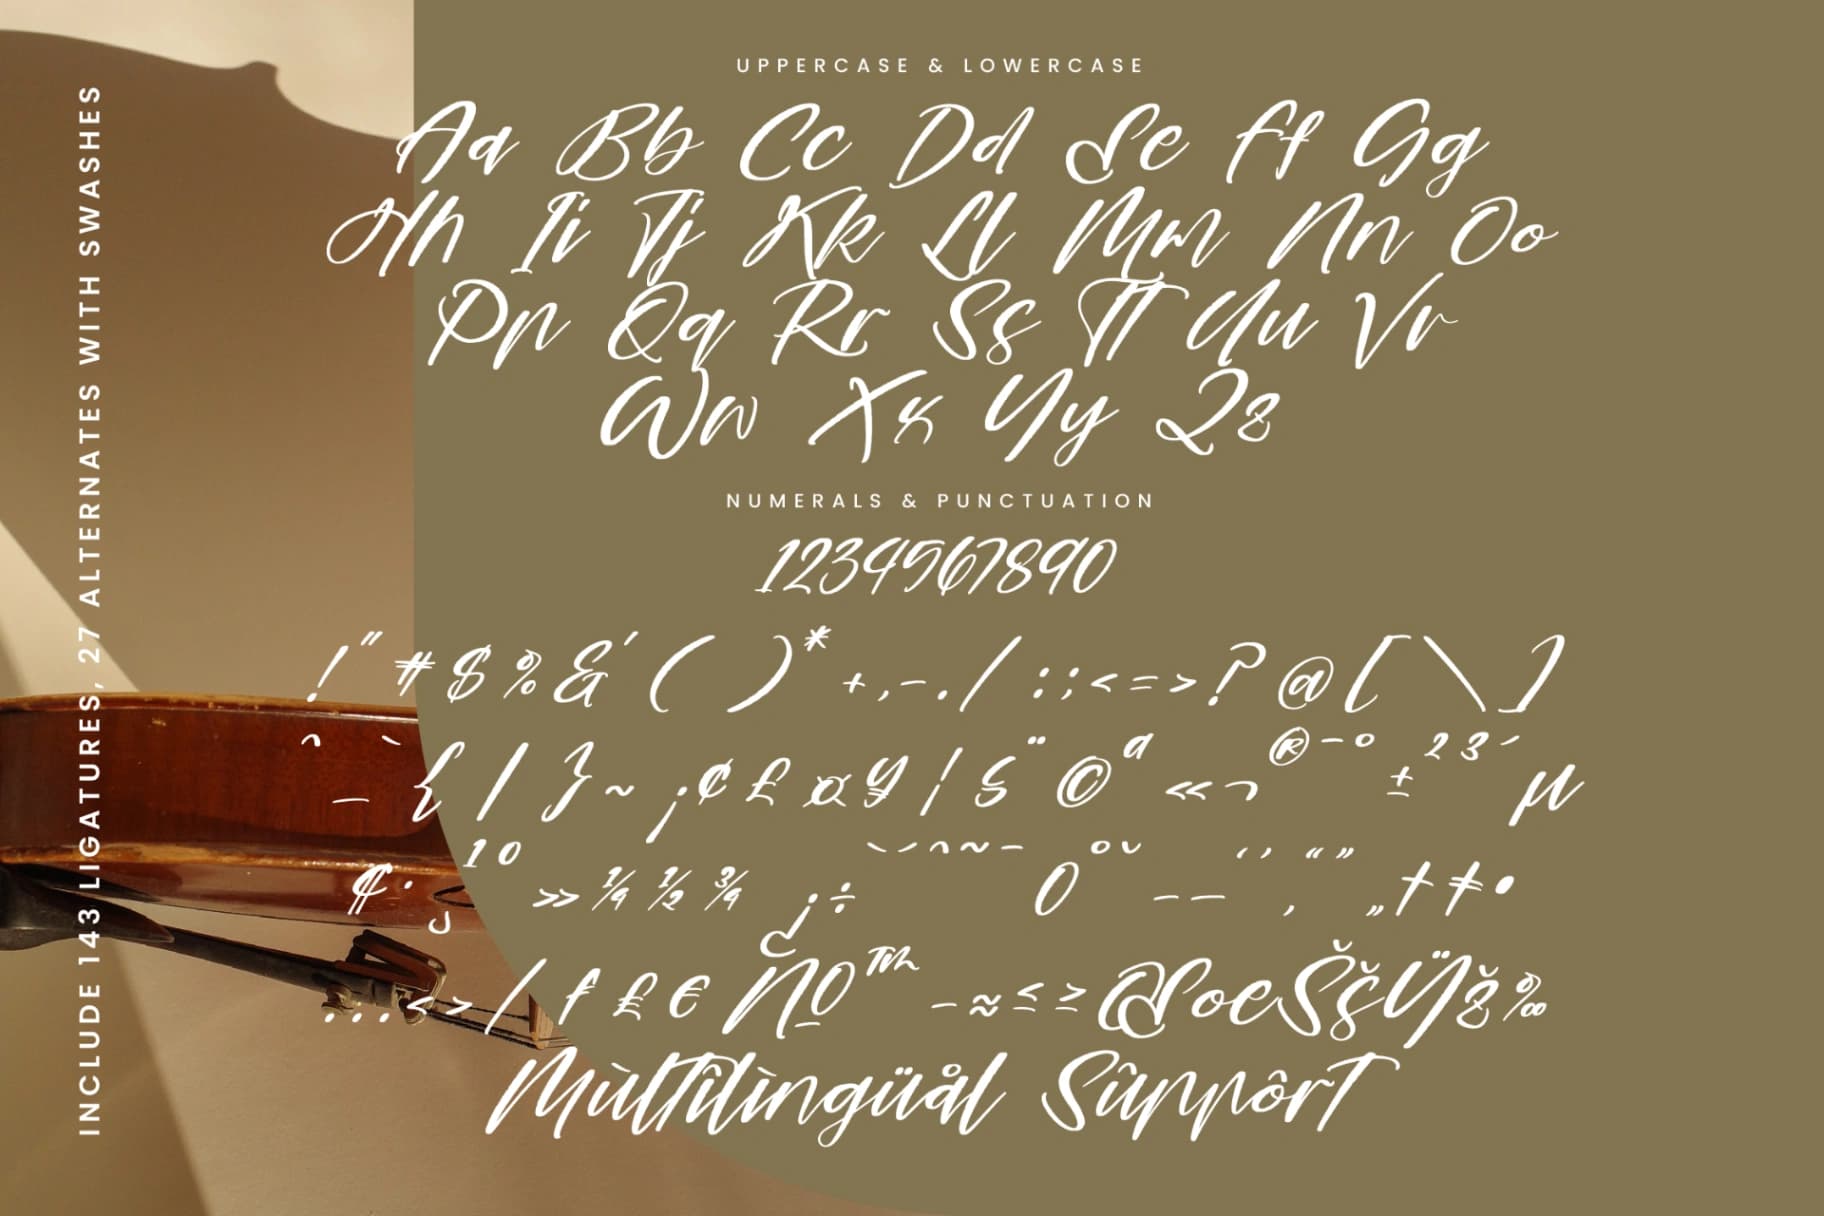 INCLUDE 143 LIGATURES, 27 ALTERNATES WITH SWASHES
UPPERCASE & LOWERCASE
Aa Bb Cc Dd Ee Ff Gg
Hh Ii Jj Kk Ll Mm Nn Oo
Pp Qq Rr Ss Tt Uu Vv
Ww Xx Yy Zz
NUMERALS & PUNCTUATION
1234567890
!"#$%&'()*+,-./:;<=>?@[\]
^_`{|}~¡¢£¤¥¦§¨©ª«¬®¯°±²³´µ
¶·¸¹º»¼½¾¿÷˘ˊˆ˜ˉ0˚ˇ–—‘’‚“”„†‡•
…‹›⁄ƒ₤€№™−≈≤≥ŒœŠšŸž‰
Mùltîlìngüål Sûppôrt